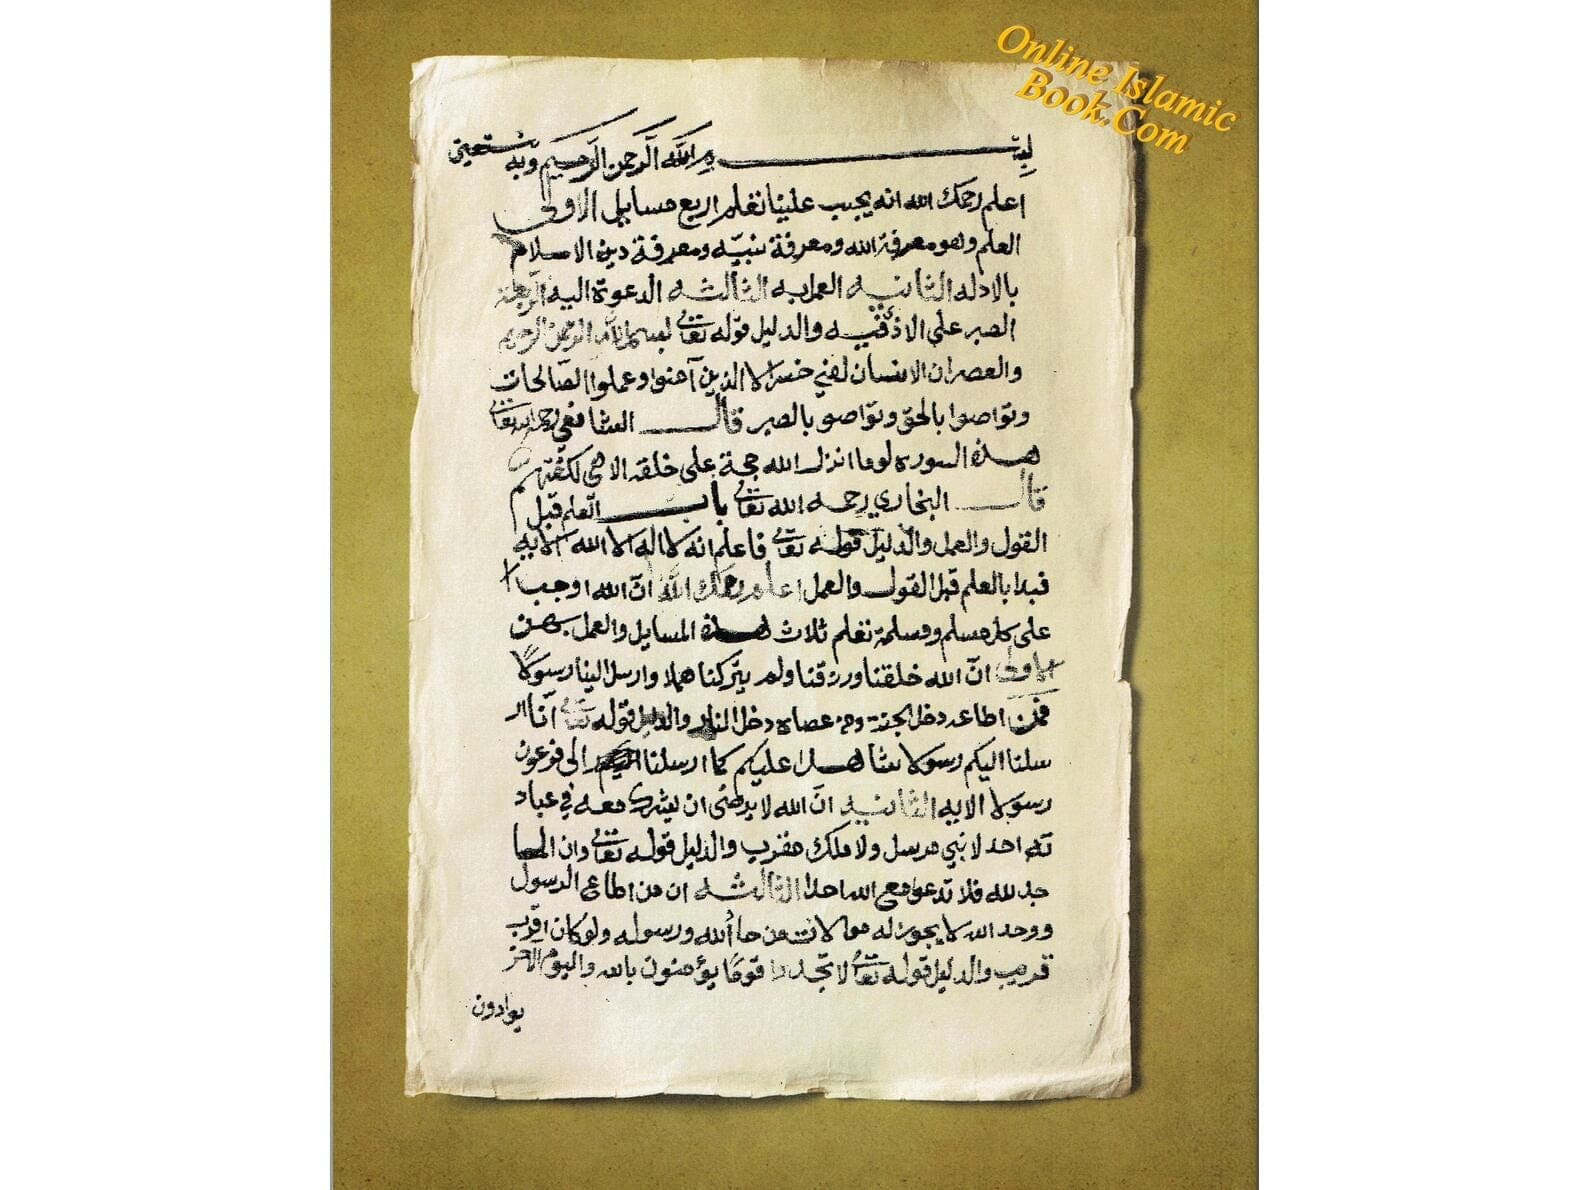 Online Islamic
Book.Com
بسم الله الرحمن الرحيم وبه نستعين
اعلم رحمك الله انه يجب علينا تعلم اربع مسايل الاولى
العلم وهو معرفة الله ومعرفة نبيه ومعرفة دين الاسلام
بالادله الثانيه العمل به الثالثه الدعوة اليه الرابعة
الصبر على الاذى فيه والدليل قوله تعالى بسم الله الرحمن الرحيم
والعصر ان الانسان لفي خسر الا الذين آمنوا وعملوا الصالحات
وتواصوا بالحق وتواصوا بالصبر قال الشافعي رحمه الله تعالى
هذه السوره لو ما انزل الله حجة على خلقه الا هي لكفتهم
قال البخاري رحمه الله تعالى باب العلم قبل
القول والعمل والدليل قوله تعالى فاعلم انه لا اله الا الله الايه
فبدا بالعلم قبل القول والعمل اعلم رحمك الله انّ الله اوجب
على كل مسلم ومسلمة تعلم ثلاث هذه المسايل والعمل بهن
الاولى انّ الله خلقنا ورزقنا ولم يتركنا هملا وارسل الينا رسولا
فمن اطاعه دخل الجنة ومن عصاه دخل النار والدليل قوله تعالى انّا ار
سلنا اليكم رسولا شاهدا عليكم كما ارسلنا الى فرعون
رسولا الايه الثانيه انّ الله لا يرضى ان يشرك معه في عباد
ته احد لا نبي مرسل ولا ملك مقرب والدليل قوله تعالى وان المسا
جد لله فلا تدعوا مع الله احدا الثالثه ان من اطاع الرسول
ووحد الله لا يجوز له موالات من حاد الله ورسوله ولو كان اقرب
قريب والدليل قوله تعالى لا تجد قومًا يؤمنون بالله واليوم الاخر
يوادون